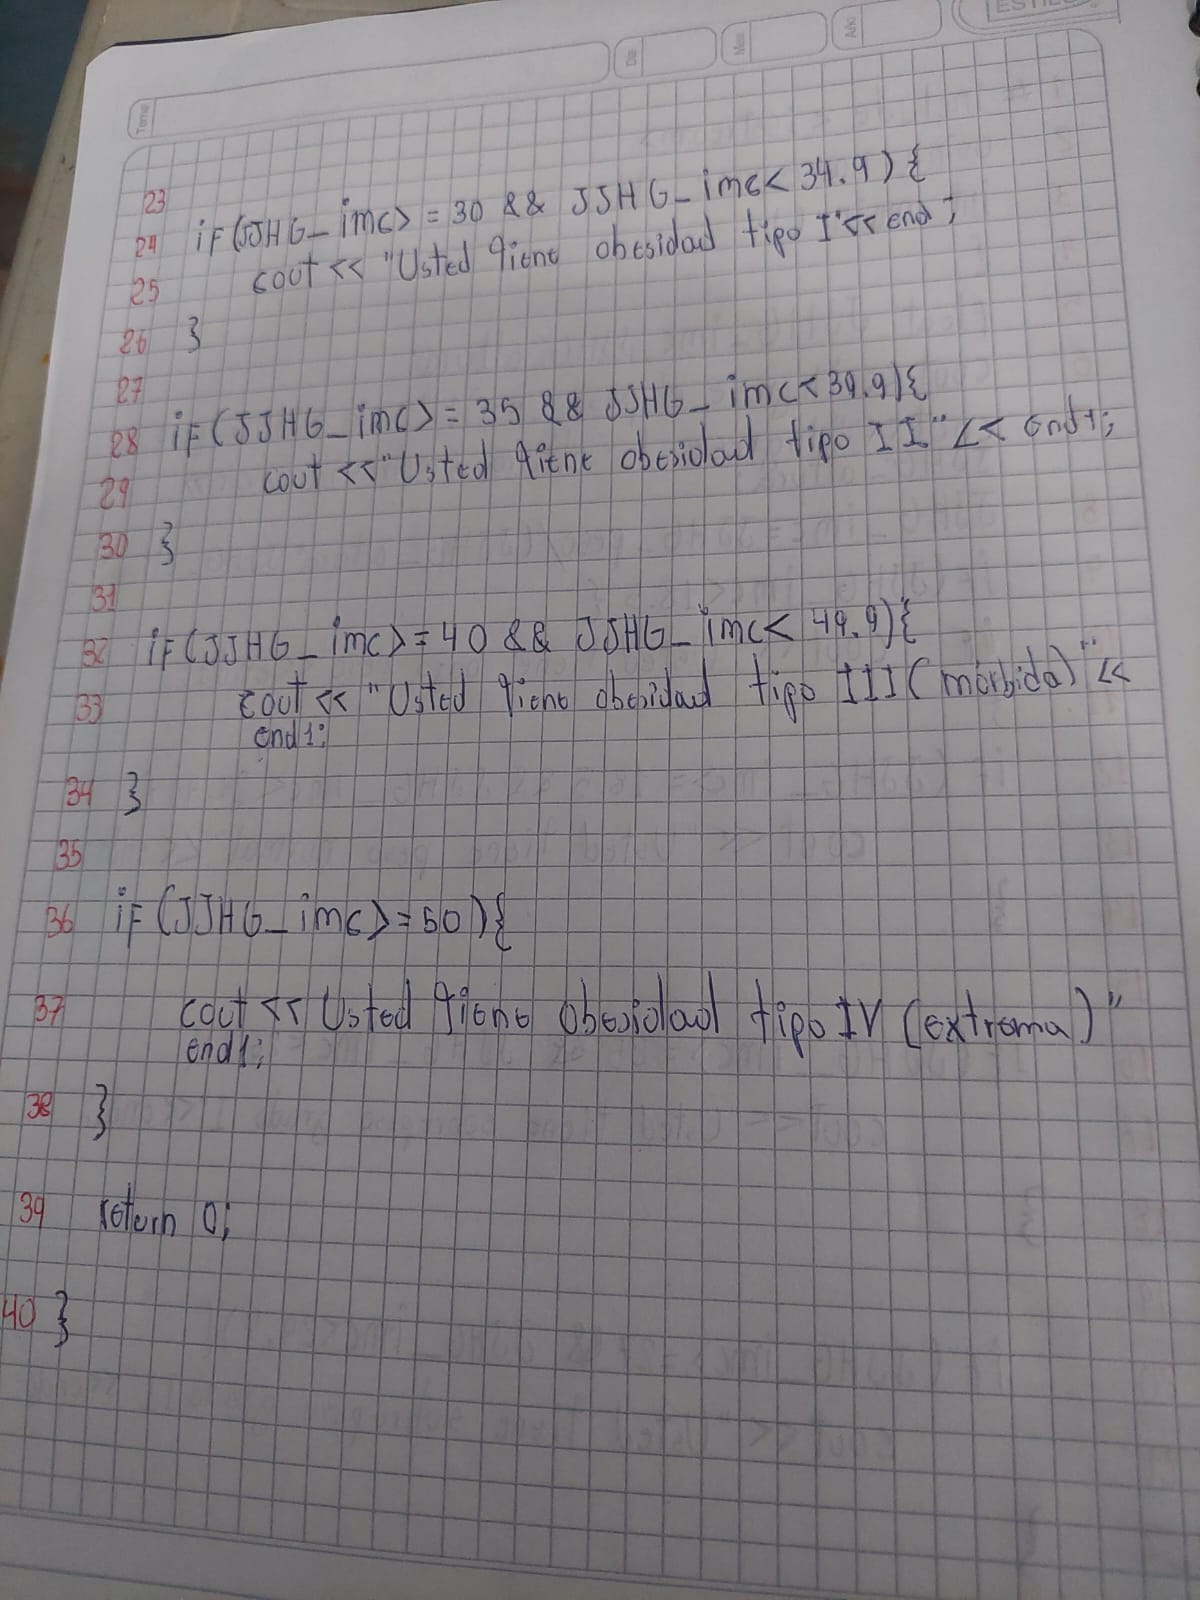 ESTILO
Tema
Día
Mes
Año
23
24 if(JJHG_imc>=30 && JJHG_imc<34.9){
25 cout << "Usted tiene obesidad tipo I"<< end;
26 }
27
28 if(JJHG_imc>=35 && JJHG_imc<39.9){
29 cout <<"Usted tiene obesidad tipo II" << endl;
30 }
31
32 if(JJHG_imc>=40 && JJHG_imc< 49.9){
33 cout << "Usted tiene obesidad tipo III(morbida)"<<
endl;
34 }
35
36 if(JJHG_imc>=50){
37 cout << Usted tiene obesidad tipo IV (extrema)"
endl;
38 }
39 return 0;
40 }